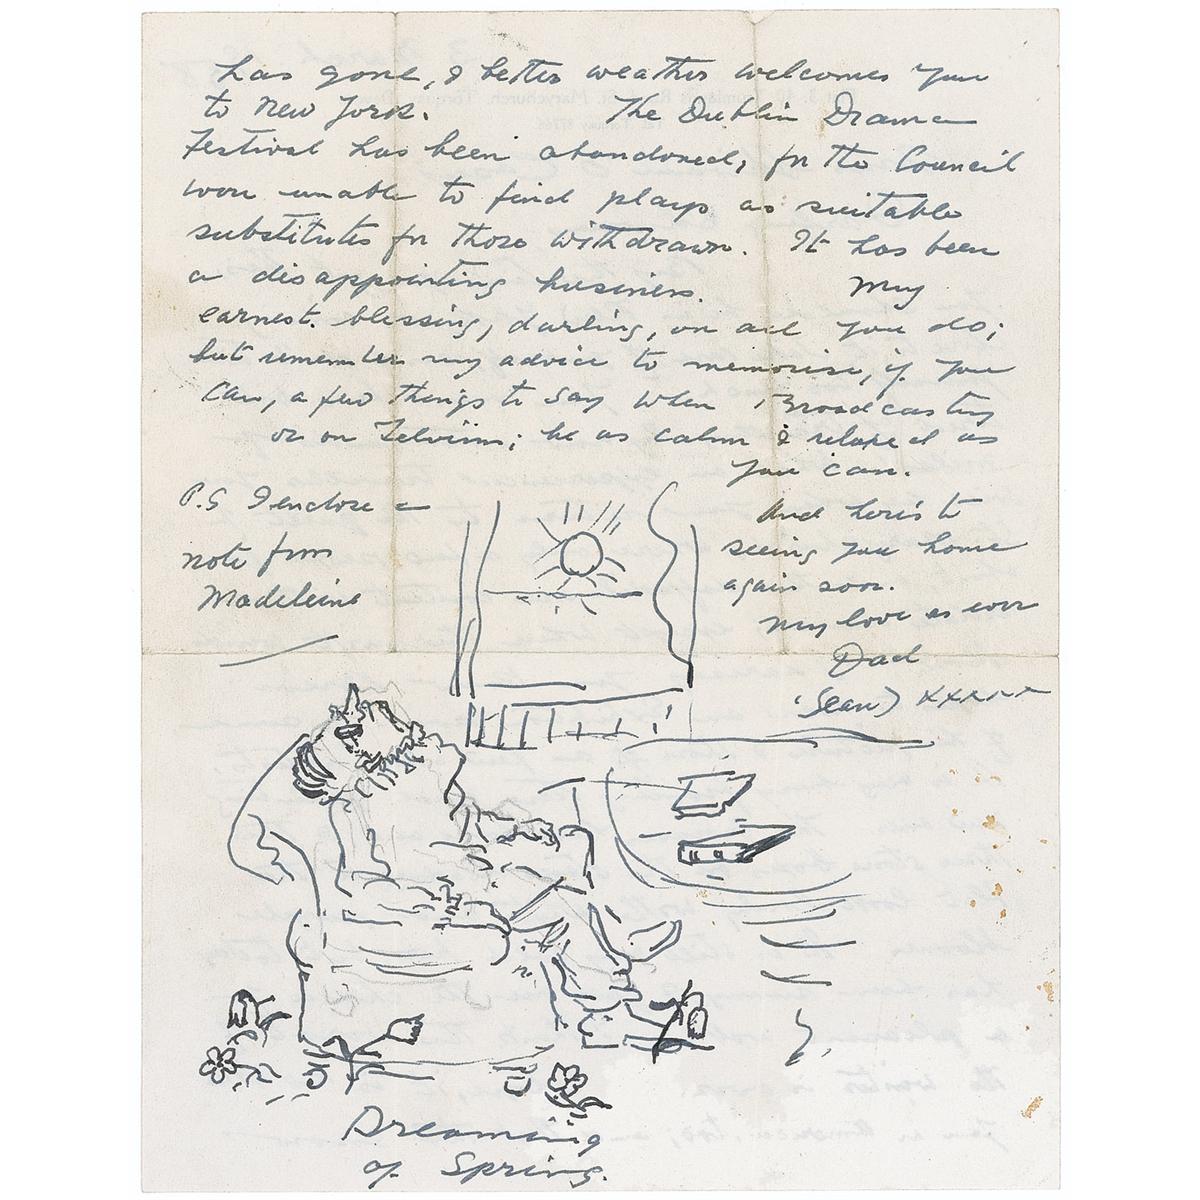 has gone, & better weather welcomes you
to New York. The Dublin Drama
Festival has been abandoned, for the Council
were unable to find plays as suitable
substitutes for those withdrawn. It has been
a disappointing business. My
earnest blessing, darling, on all you do;
but remember my advice to memorise, if you
can, a few things to say when Broadcasting
or on Television; be as calm & relaxed as
you can.
And here's to
seeing you home
again soon.
My love as ever
Dad
(Sean) xxxxx
P.S I enclose a
note from
Madeleine
Dreaming
of Spring.